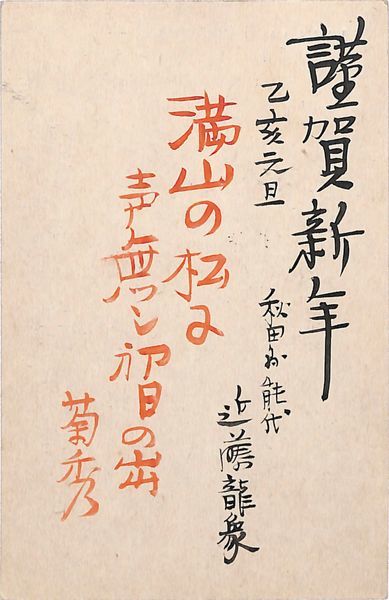 謹賀新年
乙亥元旦
秋田县能代
近藤龍象
満山の松に
声無し初日の出
菊秀